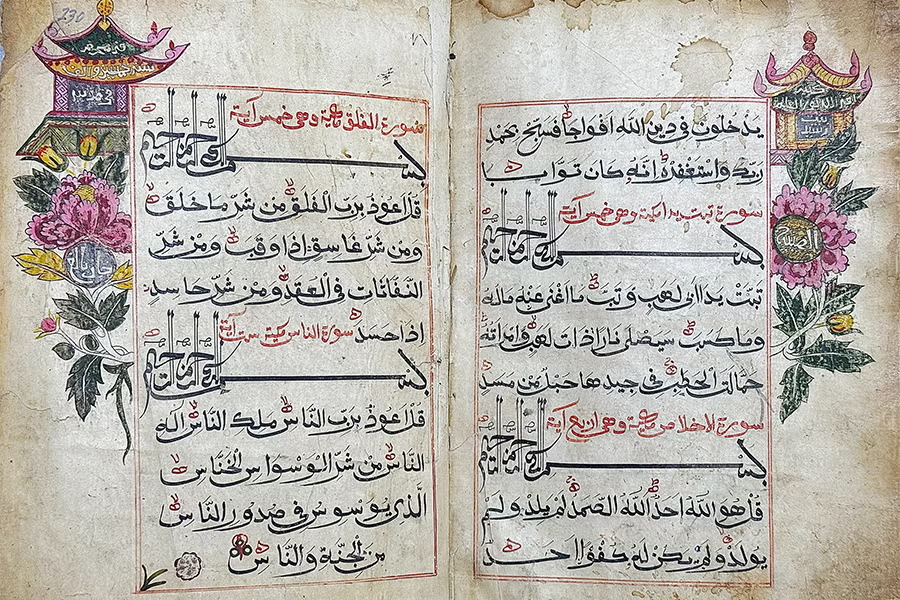 يدخلون في دين الله افواجا فسبح بحمد
ربك واستغفره انه كان توابا
سورة تبت يدا مكية وهي خمس آية
بسم الله الرحمن الرحيم
تبت يدا ابي لهب وتب ما اغنى عنه ماله
وما كسب سيصلى نارا ذات لهب وامراته
حمالت الحطب في جيدها حبل من مسد
سورة الاخلاص مكية وهي اربع آية
بسم الله الرحمن الرحيم
قل هو الله احد الله الصمد لم يلد ولم
يولد ولم يكن له كفؤا احد
230
سورة الفلق مكية وهي خمس آية
بسم الله الرحمن الرحيم
قل اعوذ برب الفلق من شر ما خلق
ومن شر غاسق اذا وقب ومن شر
النفاثات في العقد ومن شر حاسد
اذا حسد سورة الناس مكية ست آية
بسم الله الرحمن الرحيم
قل اعوذ برب الناس ملك الناس اله
الناس من شر الوسواس الخناس
الذي يوسوس في صدور الناس
من الجنة والناس